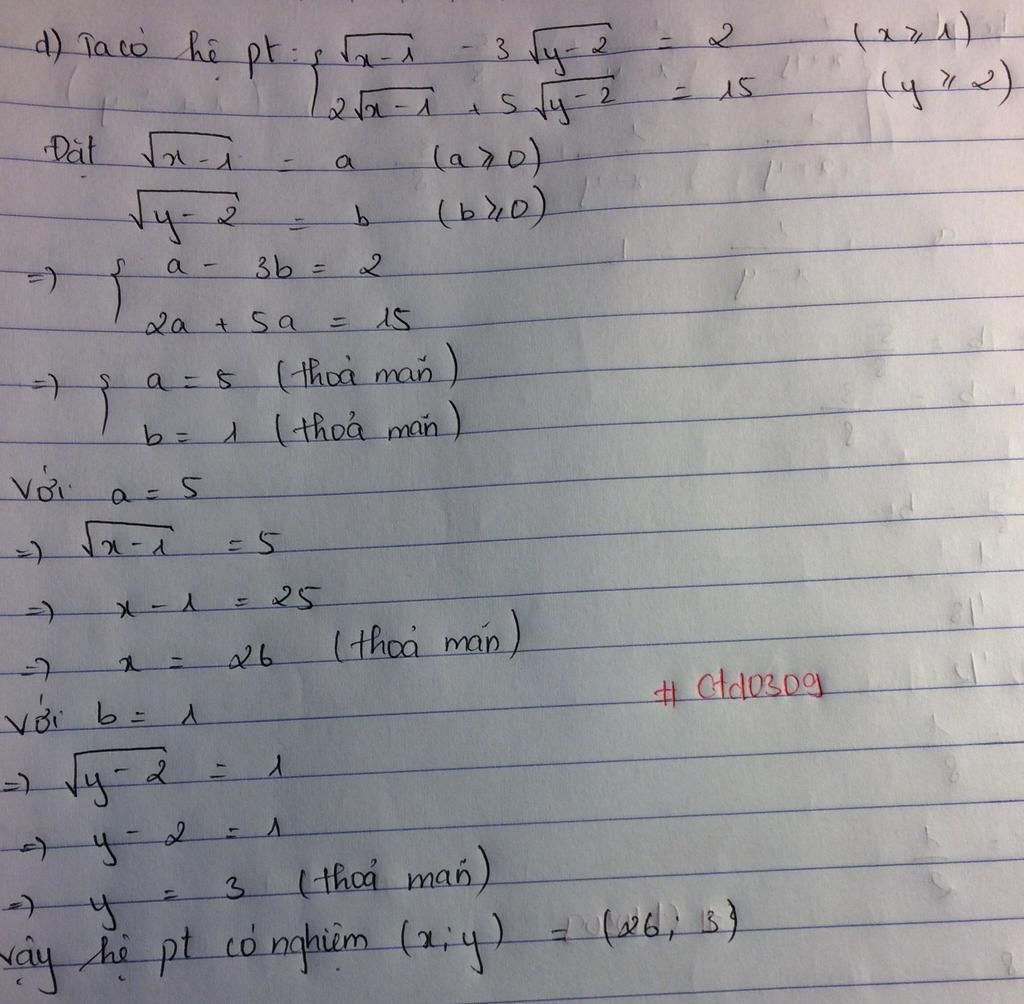 d) Ta có hệ pt: { √x-1 - 3√y-2 = 2 (x ⩾ 1)
2√x-1 + 5√y-2 = 15 (y ⩾ 2)
Đặt √x-1 = a (a ⩾ 0)
√y-2 = b (b ⩾ 0)
=> { a - 3b = 2
2a + 5a = 15
=> { a = 5 (thoả mãn)
b = 1 (thoả mãn)
Với a = 5
=> √x-1 = 5
=> x - 1 = 25
=> x = 26 (thoả mãn)
# Ctd0309
Với b = 1
=> √y-2 = 1
=> y - 2 = 1
=> y = 3 (thoả mãn)
vậy hệ pt có nghiệm (x;y) = (26; 3)